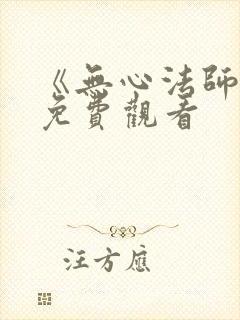 《無心法師
免費觀看
汪方應